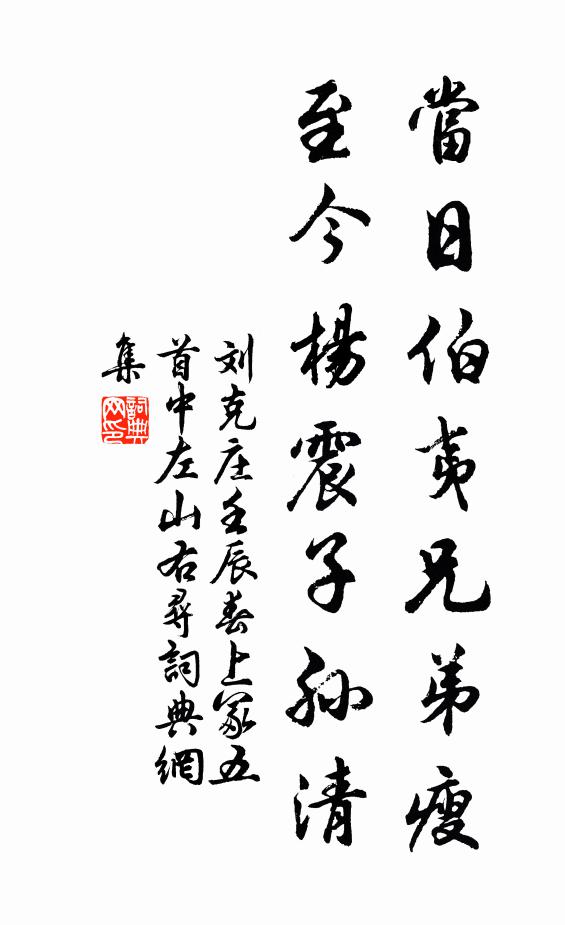 當日伯夷兄弟瘦
至今楊震子孫清
刘克庄壬辰春上冢五
首中左山右尋詞典網
集
詞典
网印